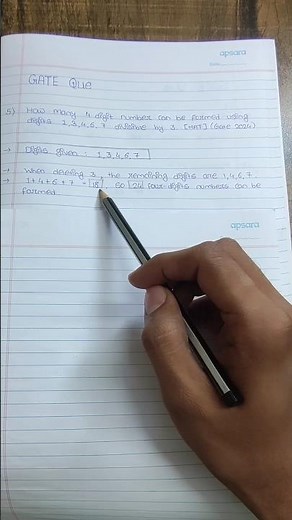 apsara
GATE Que
5) How many 4 digit number can be formed using
digits 1,3,4,6,7 divisible by 3. [MET] (Gate 2024)
→ Digits given : 1,3,4,6,7
→ When deleting 3, the remaining digits are 1,4,6,7.
→ 1+4+6+7 = 18, so 24 four digits numbers can be
formed
apsara